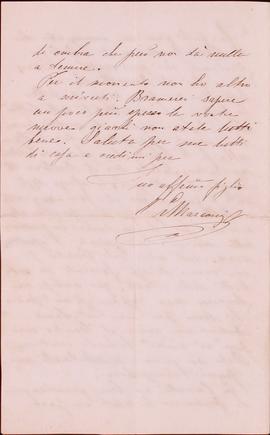 di ombra che però non dà nulla
a temere.
Per il momento non ho altro
a scriverti. Bramerei sapere
un poco più spesso le vostre
nuove giacchè non state tutti
bene. Saluta per me tutti
di casa e credimi per
tuo affmo figlio
GMarconi